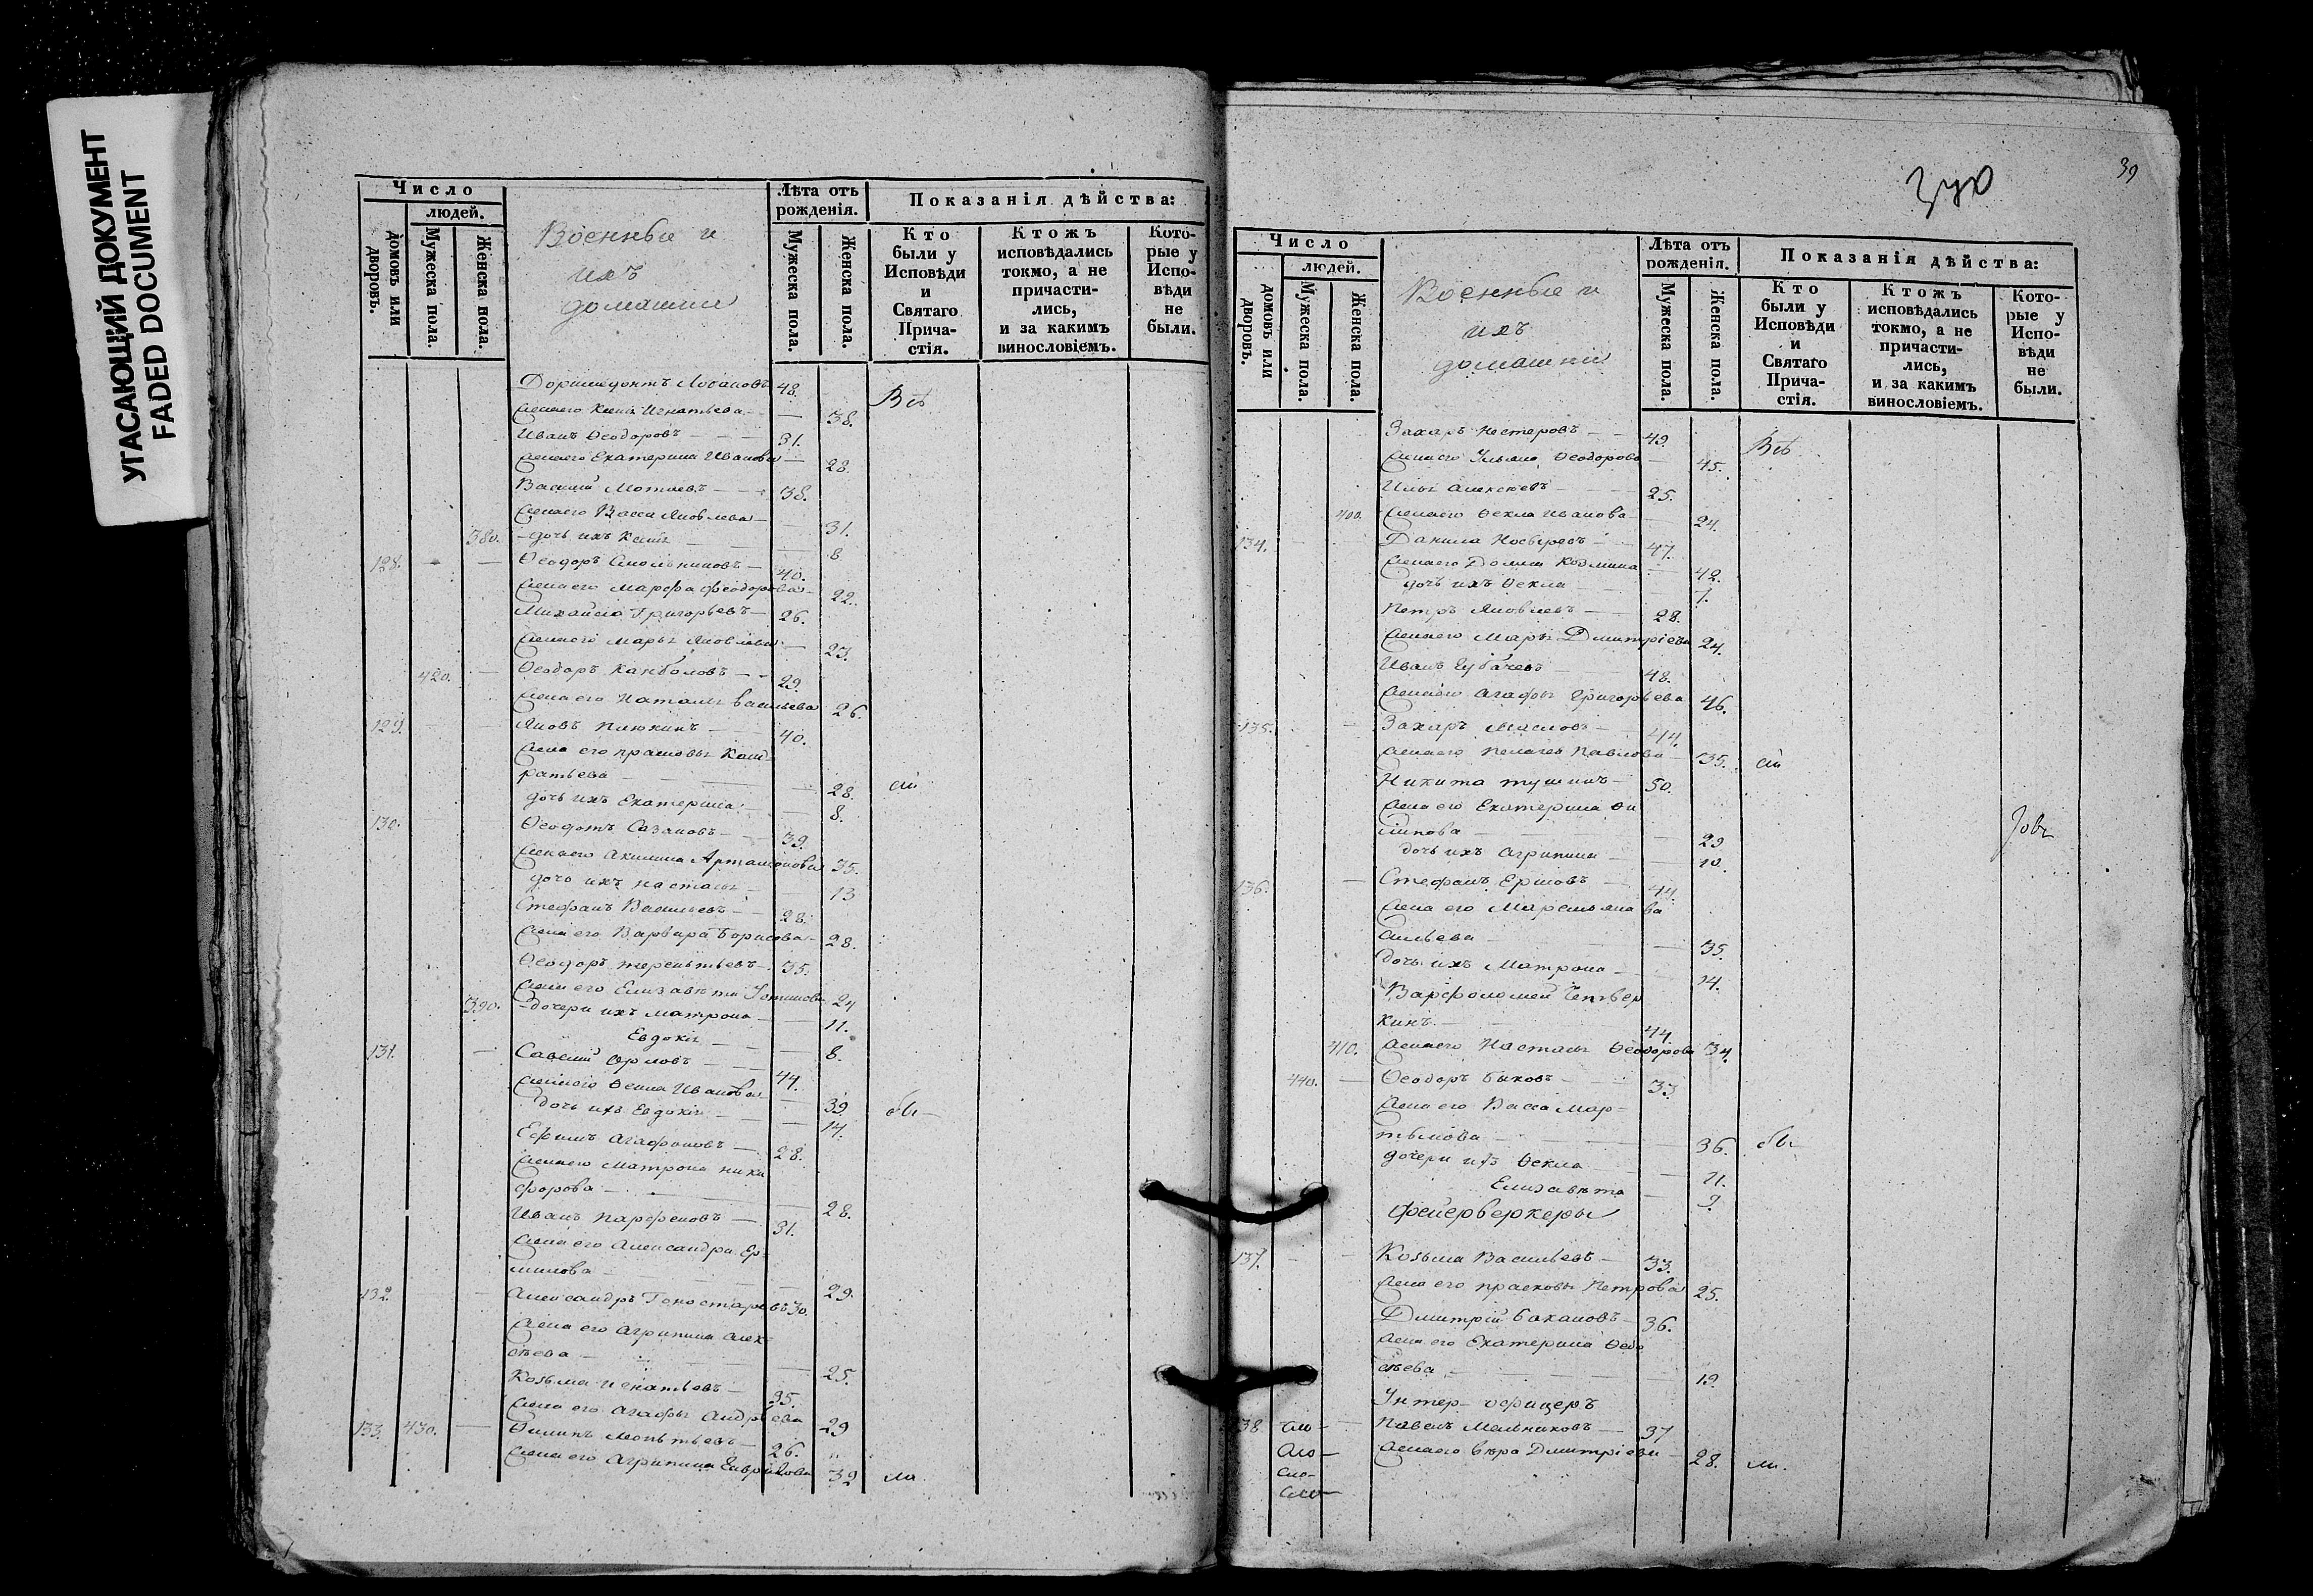 УГАСАЮЩИЙ ДОКУМЕНТ
FADED DOCUMENT
Число
людей.
домовъ или дворовъ.
Мужеска пола.
Женска пола.
Военные и
ихъ
домашніи
Лѣта отъ рожденія.
Мужеска пола.
Женска пола.
Показанія дѣйства:
Кто были у Исповѣди и Святаго Прича- стія.
Ктожъ исповѣдались токмо, а не причасти- лись, и за какимъ винословіемъ.
Кото- рые у Испо- вѣди не были.
48. Всѣ
жена его Игнатьева 38.
Иванъ Ѳеодоровъ 31.
жена его Екатерина Иванова 28.
Василій 38.
жена его Васса Яковлева 31.
380. дочь ихъ 8
128. Ѳеодоръ 40.
жена его Марфа Феодорова 22.
Михайла Григорьевъ 26.
жена его Марья Яковлева 23.
420. Ѳеодоръ 29.
жена его Наталья Васильева 26.
129. Яковъ 40.
жена его Прасковья Конд
ратьева 28. сіи
дочь ихъ Екатерина 8.
130. Ѳеодотъ Сазановъ 39.
жена его Акилина Артамонова 35.
дочь ихъ Настасья 13
Стефанъ Васильевъ 28.
жена его Варвара Борисова 28.
Ѳеодоръ Терентьевъ 35.
жена его Елизавета 24
390. дочери ихъ Матрона 11.
Евдокія 8.
131. Савелій Орловъ 44.
жена его Ѳекла Иванова 39 бы
дочь ихъ Евдокія 14.
Ефимъ Агафоновъ 28.
жена его Матрона Ники
форова 28.
Иванъ Парфеновъ 31.
жена его Александра Ер-
милова 29.
132. Александръ Гоностаревъ 30.
жена его Агрипина Алек-
сѣева 25.
Козьма Игнатьевъ 35.
жена его Агафья Андреева 29
133. 430. Филипъ 26.
жена его Агрипина 32 ли
340
39
Число
людей.
домовъ или дворовъ.
Мужеска пола.
Женска пола.
Военные и
ихъ
домашніи
Лѣта отъ рожденія.
Мужеска пола.
Женска пола.
Показанія дѣйства:
Кто были у Исповѣди и Святаго Прича- стія.
Ктожъ исповѣдались токмо, а не причасти- лись, и за какимъ винословіемъ.
Кото- рые у Испо- вѣди не были.
Захаръ Нестеровъ 49. Всѣ
жена его Ульяна Ѳеодорова 45.
Илья Алексѣевъ 25.
400. жена его Ѳекла Иванова 24.
134. Данила Носыревъ 47.
жена его Домна Козмина 42.
дочь ихъ Ѳекла 7.
Петръ Яковлевъ 28.
жена его Марья Дмитріева 24.
Иванъ Губачевъ 48.
жена его Агафья Григорьева 46.
135. Захаръ Масловъ 44.
жена его Пелагея Павлова 35. сіи
Никита Тушинъ 50.
жена его Екатерина Фи
липова 29
дочь ихъ Агрипина 10.
136. Стефанъ Ершовъ 44.
жена его Маремьяна Ва
сильева 35.
дочь ихъ Матрона 14.
Варфоломей Четвер
кинъ 44.
410. жена его Настасья Ѳеодорова 34.
440. Ѳеодоръ Быковъ 33
жена его Васса Мар-
тынова 36. бы
дочери ихъ Ѳекла 11.
Елизавета 9.
Фейерверкеры
137. Козьма Васильевъ 33.
жена его Прасковья Петрова 25.
Дмитрій Бакановъ 36.
жена его Екатерина Ѳедо
сѣева 19.
Унтер-офицеръ
138 Павелъ Мельниковъ 37
жена его Вѣра Дмитріева 28. ли.